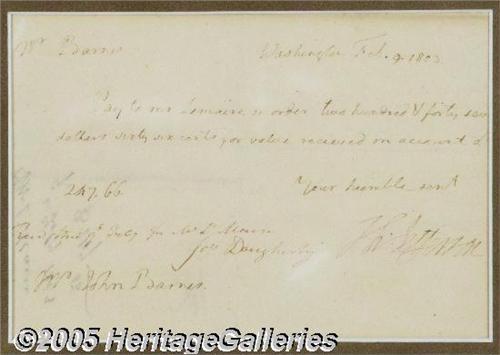 Mr Barnes
Washington Feb. 9. 1803
Pay to mr Lemaire or order two hundred & forty seven
dollars sixty six cents for value recieved on account of
247.66
Your humble servt
Th: Jefferson
Mr Le Maire
Jos Dougherty
Mr John Barnes.
©2005 HeritageGalleries